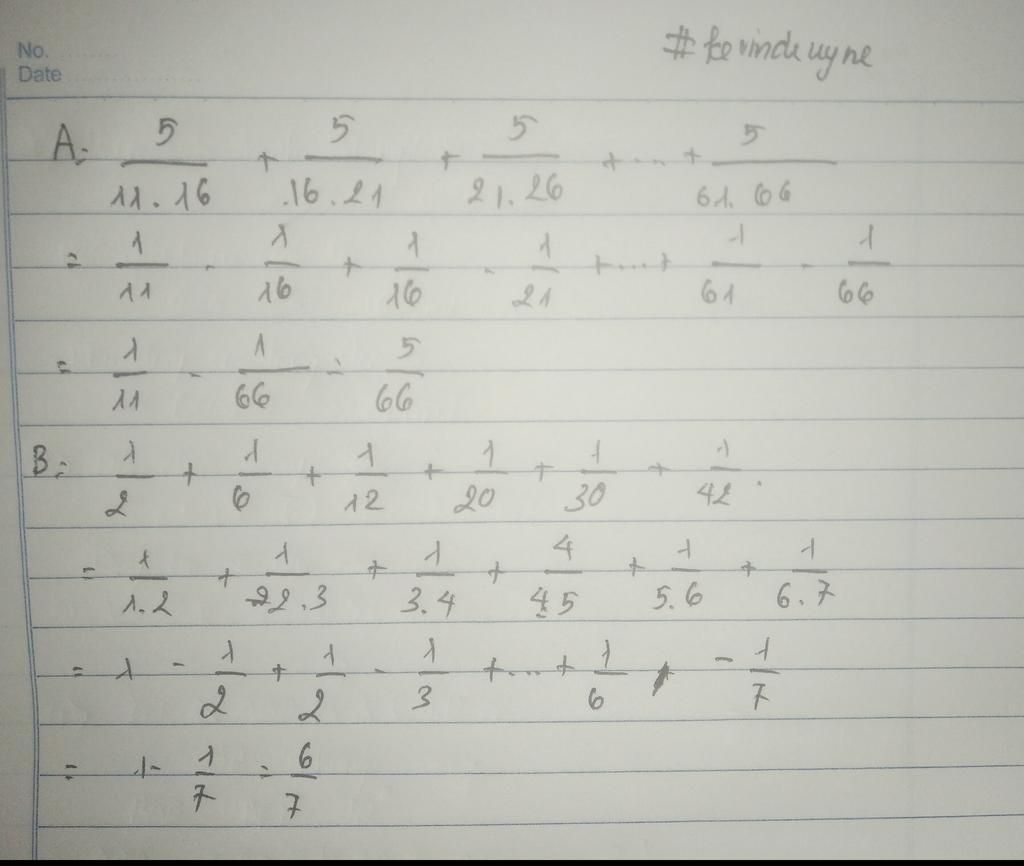 No.
Date
A = 5/11.16 + 5/16.21 + 5/21.26 + ... + 5/61.66
= 1/11 - 1/16 + 1/16 - 1/21 + ... + 1/61 - 1/66
= 1/11 - 1/66 = 5/66
B = 1/2 + 1/6 + 1/12 + 1/20 + 1/30 + 1/42.
= 1/1.2 + 1/2.3 + 1/3.4 + 4/4.5 + 1/5.6 + 1/6.7
= 1 - 1/2 + 1/2 - 1/3 + ... + 1/6 - 1/7
= 1 - 1/7 = 6/7